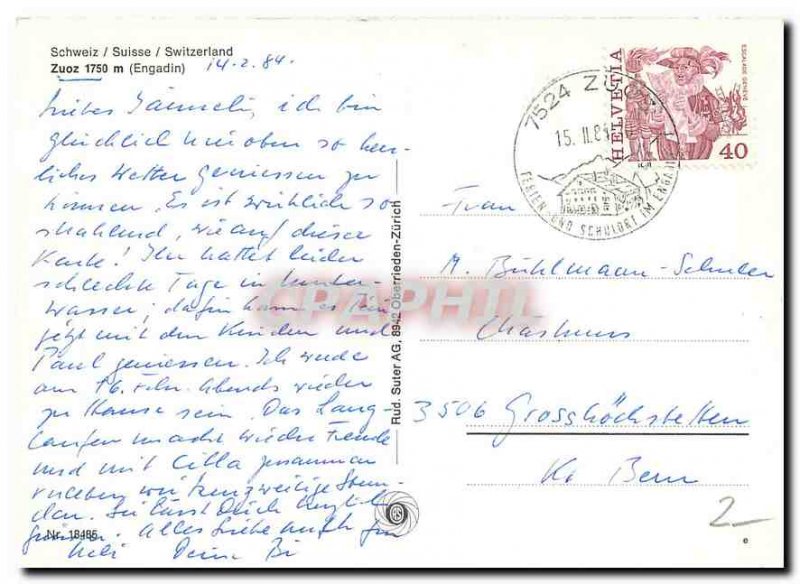 Schweiz / Suisse / Switzerland
Zuoz 1750 m (Engadin) 14.2.84.
ich bin
glücklich hier oben so herr-
liches Wetter geniessen zu
können. Es ist wirklich so
strahlend, wie auf dieser
Karte! Ihr hattet leider
schlechte Tage in Unter-
wasser; dafür kann es
jetzt mit den Kindern und
Paul geniessen. Ich werde
am 16. Febr. abends wieder
zu Hause sein. Das Lang-
laufen macht wieder Freude
und mit Cilla zusammen
wir kurzweilige Stun-
den. Sei lieb
Alles Liebe auch für
Heli Deine Bi
Nr. 18485
Rud. Suter AG, 8942 Oberrieden-Zürich
CPAPHIL
7524 ZUOZ
15. II. 84
FERIEN- UND SCHULORT IM ENGADIN
HELVETIA
ESCALADE GENÈVE
40
Frau
A. Bühlmann-Schuler
3506 Grosshöchstetten
Kt. Bern
2.-
e